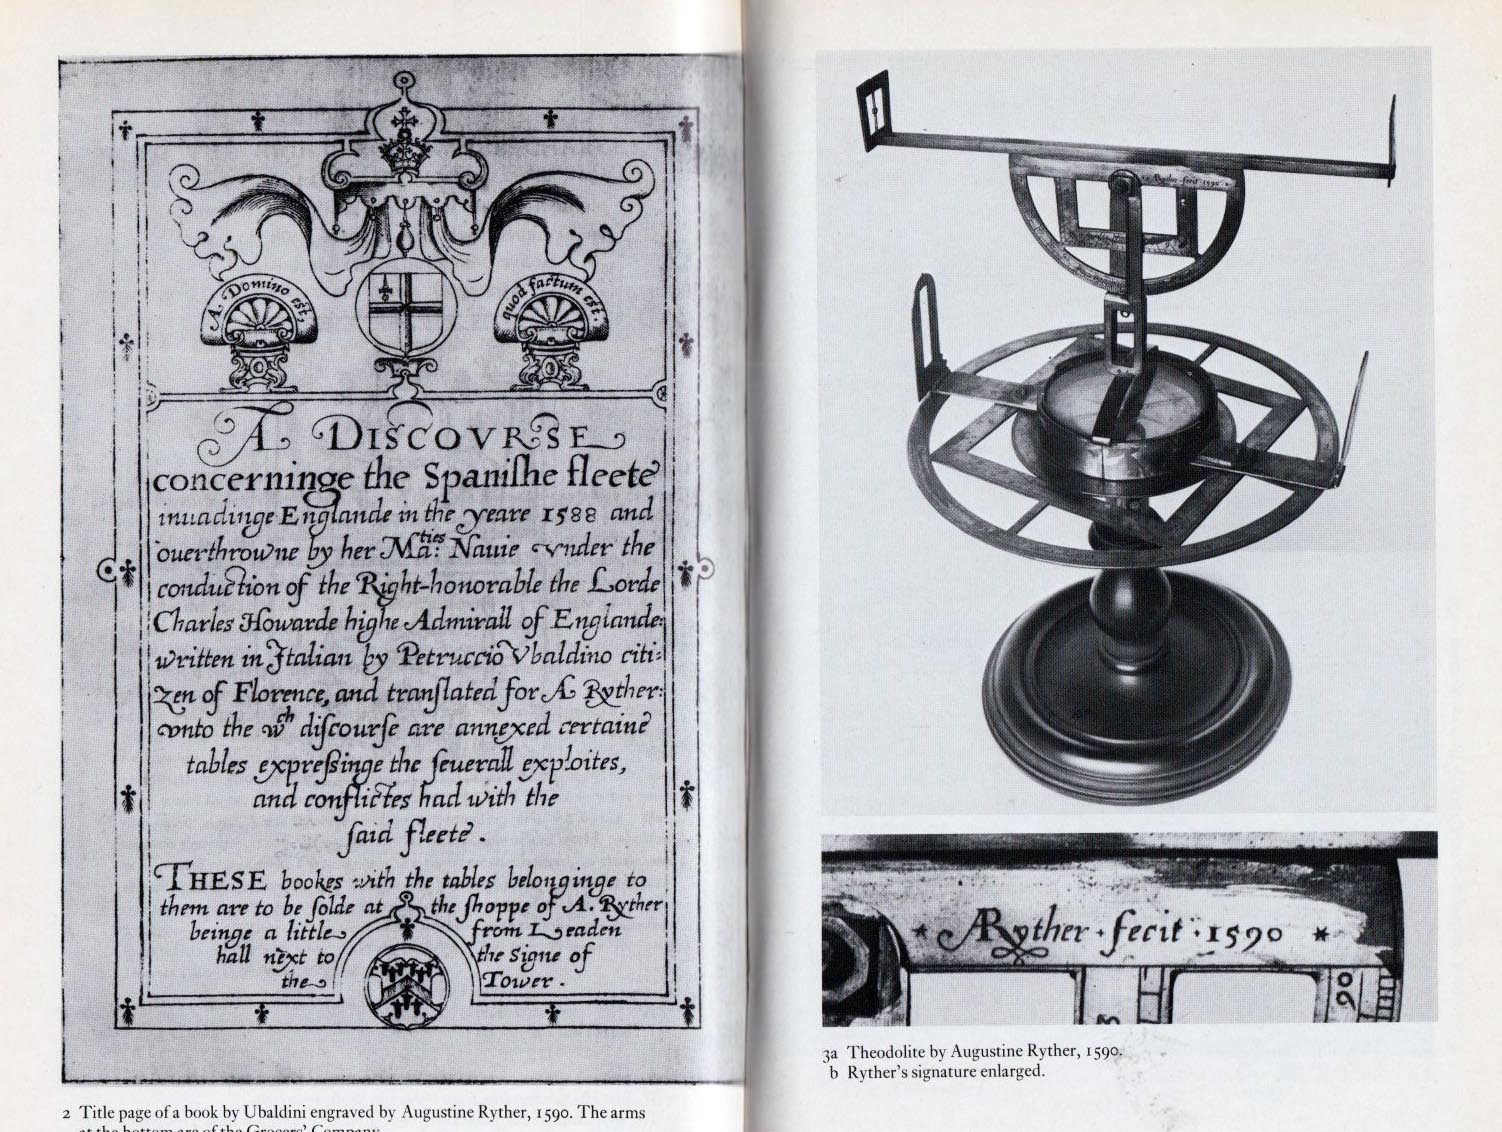 A. Domino est,
quod factum est.
A DISCOVRSE
concerninge the Spaniſhe fleete
inuadinge Englande in the yeare 1588 and
ouerthrowne by her Ma:ties Nauie vnder the
conduction of the Right-honorable the Lorde
Charles Howarde highe Admirall of Englande:
written in Italian by Petruccio Vbaldino citi:
zen of Florence, and tranſlated for A Ryther:
vnto the wch diſcourſe are annexed certaine
tables expreſsinge the ſeuerall exploites,
and conflictes had with the
ſaid fleete.
THESE bookes with the tables belonginge to
them are to be ſolde at the ſhoppe of A. Ryther
beinge a little from Leaden
hall next to the Signe of
the Tower.
2 Title page of a book by Ubaldini engraved by Augustine Ryther, 1590. The arms
at the bottom are of the Grocers' Company.
Ryther fecit 1590
* ARyther · fecit · 1590 *
90
3a Theodolite by Augustine Ryther, 1590.
b Ryther's signature enlarged.